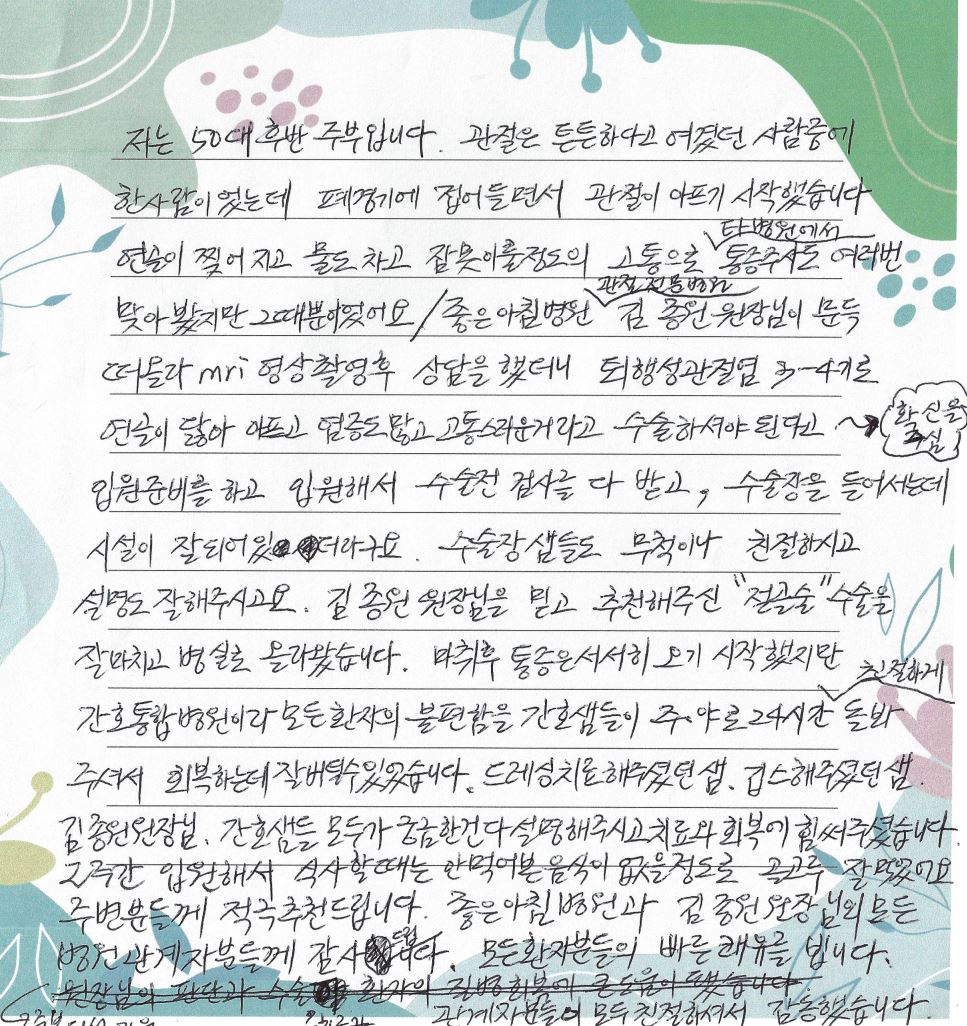 저는 50대 후반 주부입니다. 관절은 튼튼하다고 여겼던 사람중에
한사람이었는데 폐경기에 접어들면서 관절이 아프기 시작했습니다
타병원에서
연골이 찢어지고 물도 차고 잠못이룰정도의 고통으로 통증주사도 여러번
관절전문병원
맞아 봤지만 그때뿐이었어요/좋은아침병원 김 종원 원장님이 문득
떠올라 mri 영상촬영후 상담을 했더니 퇴행성관절염 3-4기로
연골이 닳아 아프고 염증도 많고 고통스러운거라고 수술하셔야 된다고
확신을
주심
입원준비를 하고 입원해서 수술전 검사를 다 받고, 수술장을 들어서는데
시설이 잘되어있더라구요. 수술장 샘들도 무척이나 친절하시고
설명도 잘해주시고요. 김 종원 원장님을 믿고 추천해주신 "절골술" 수술을
잘마치고 병실로 올라왔습니다. 마취후 통증은서서히 오기 시작했지만
친절하게
간호통합병원이라 모든환자의 불편함을 간호샘들이 주·야로24시간 돌봐
주셔서 회복하는데 잘버틸수있었습니다. 드레싱치료해주셨던샘. 깁스해주셨던샘.
김종원원장님. 간호샘들 모두가 궁금한건다설명해주시고치료와 회복에 힘써주셨습니다.
2주간 입원해서 식사할때는 안먹어본음식이 없을정도로 골고루 잘먹었어요
주변분들께 적극추천드립니다. 좋은아침병원과 김 종원원장님외모든
병원관계자분들께 감사드립니다. 모든환자분들의 빠른쾌유를 빕니다.
원장님의 판단과 수술 환자의 질병회복에 큰도움이
관계자분들이 모두친절하셔서 감동했습니다.